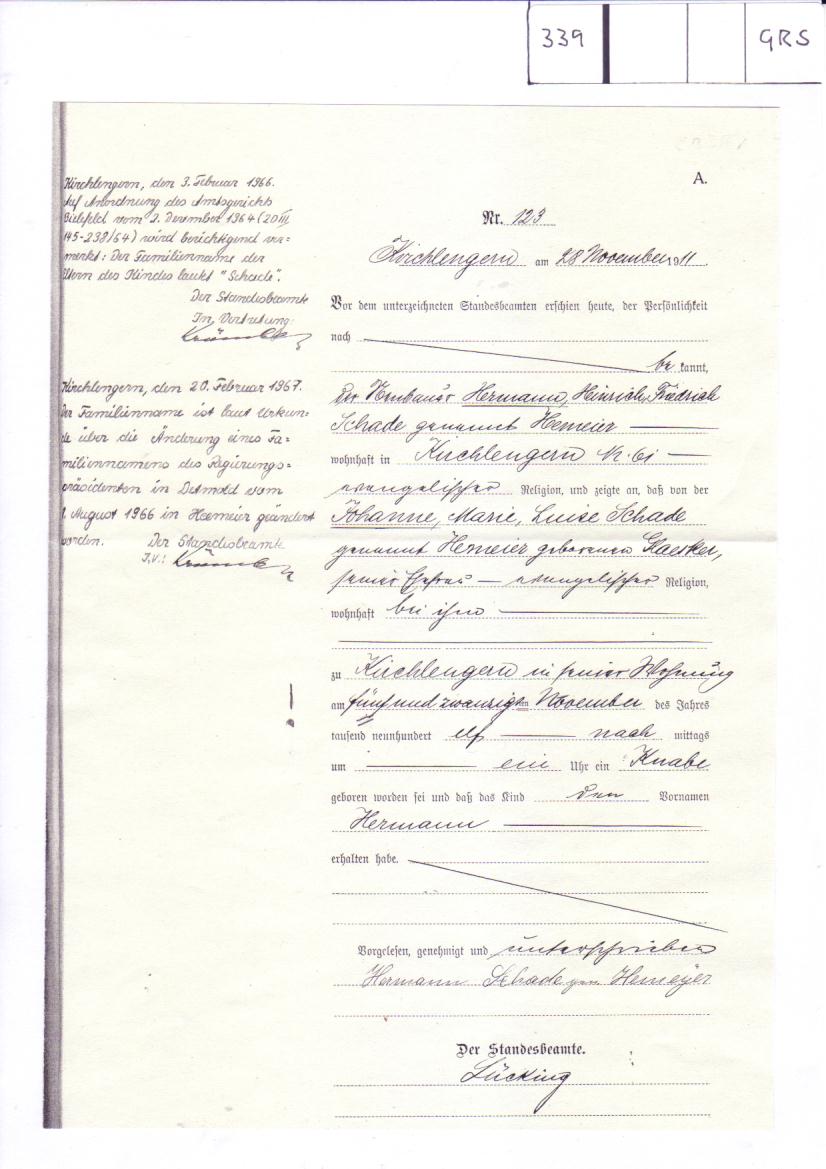 339
GRS
Kirchlengern, den 3. Februar 1966.
Auf Anordnung des Amtsgerichts
Bielefeld vom 2. Dezember 1964 (20 III
145-238/64) wird berichtigend ver-
merkt: Der Familienname der
Eltern des Kindes lautet "Schade".
Der Standesbeamte
In Vertretung:
Kirchlengern, den 20. Februar 1967.
Der Familienname ist laut Urkun-
de über die Änderung eines Fa-
miliennamens des Regierungs-
präsidenten in Detmold vom
1. August 1966 in Hemeier geändert
worden. Der Standesbeamte
I.V.:
A.
Nr. 123
Kirchlengern am 28 November 1911.
Vor dem unterzeichneten Standesbeamten erschien heute, der Persönlichkeit
nach
be kannt,
der Neubauer Hermann, Heinrich, Friedrich
Schade genannt Hemeier
wohnhaft in Kirchlengern Nr. 61
evangelischer Religion, und zeigte an, daß von der
Johanne, Marie, Luise Schade
genannt Hemeier geborenen
seiner Ehefrau evangelischer Religion,
wohnhaft bei ihm
zu Kirchlengern in seiner Wohnung
am fünf und zwanzigsten November des Jahres
tausend neunhundert elf nach mittags
um ein Uhr ein Knabe
geboren worden sei und daß das Kind den Vornamen
Hermann
erhalten habe.
Vorgelesen, genehmigt und unterschrieben
Hermann Schade gen. Hemeyer
Der Standesbeamte.
Lücking